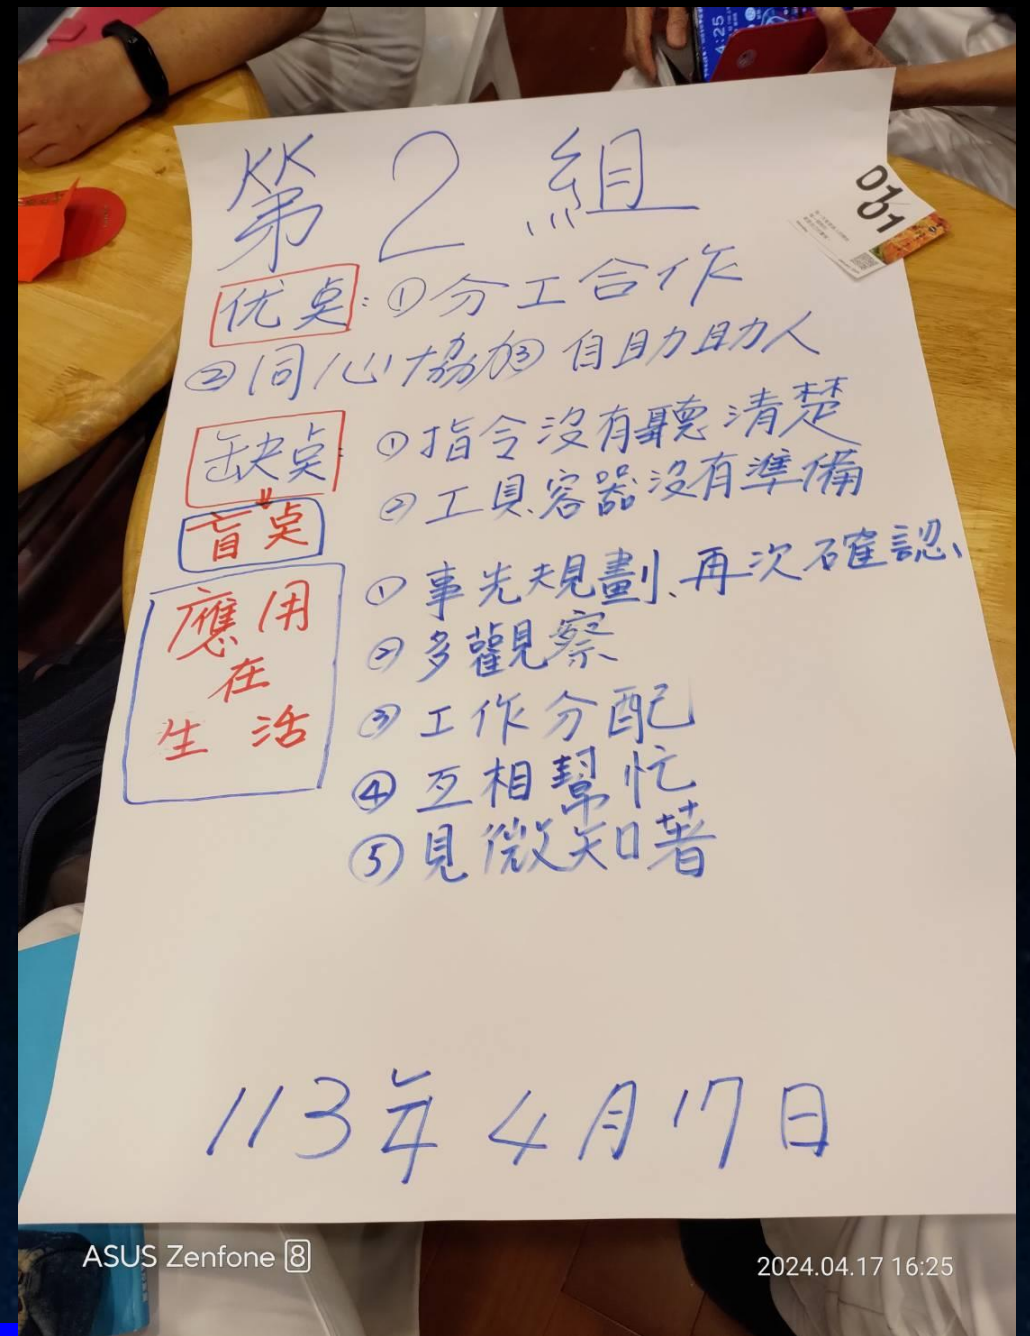 4:25
第2組
01/01
优点:①分工合作
②同心協力③自助助人
缺点: ①指令沒有聽清楚
②工具容器沒有準備
盲点
應用
在
生活
①事先規劃、再次確認、
②多觀察
③工作分配
④互相幫忙
⑤見微知著
113年4月17日
ASUS Zenfone 8
2024.04.17 16:25